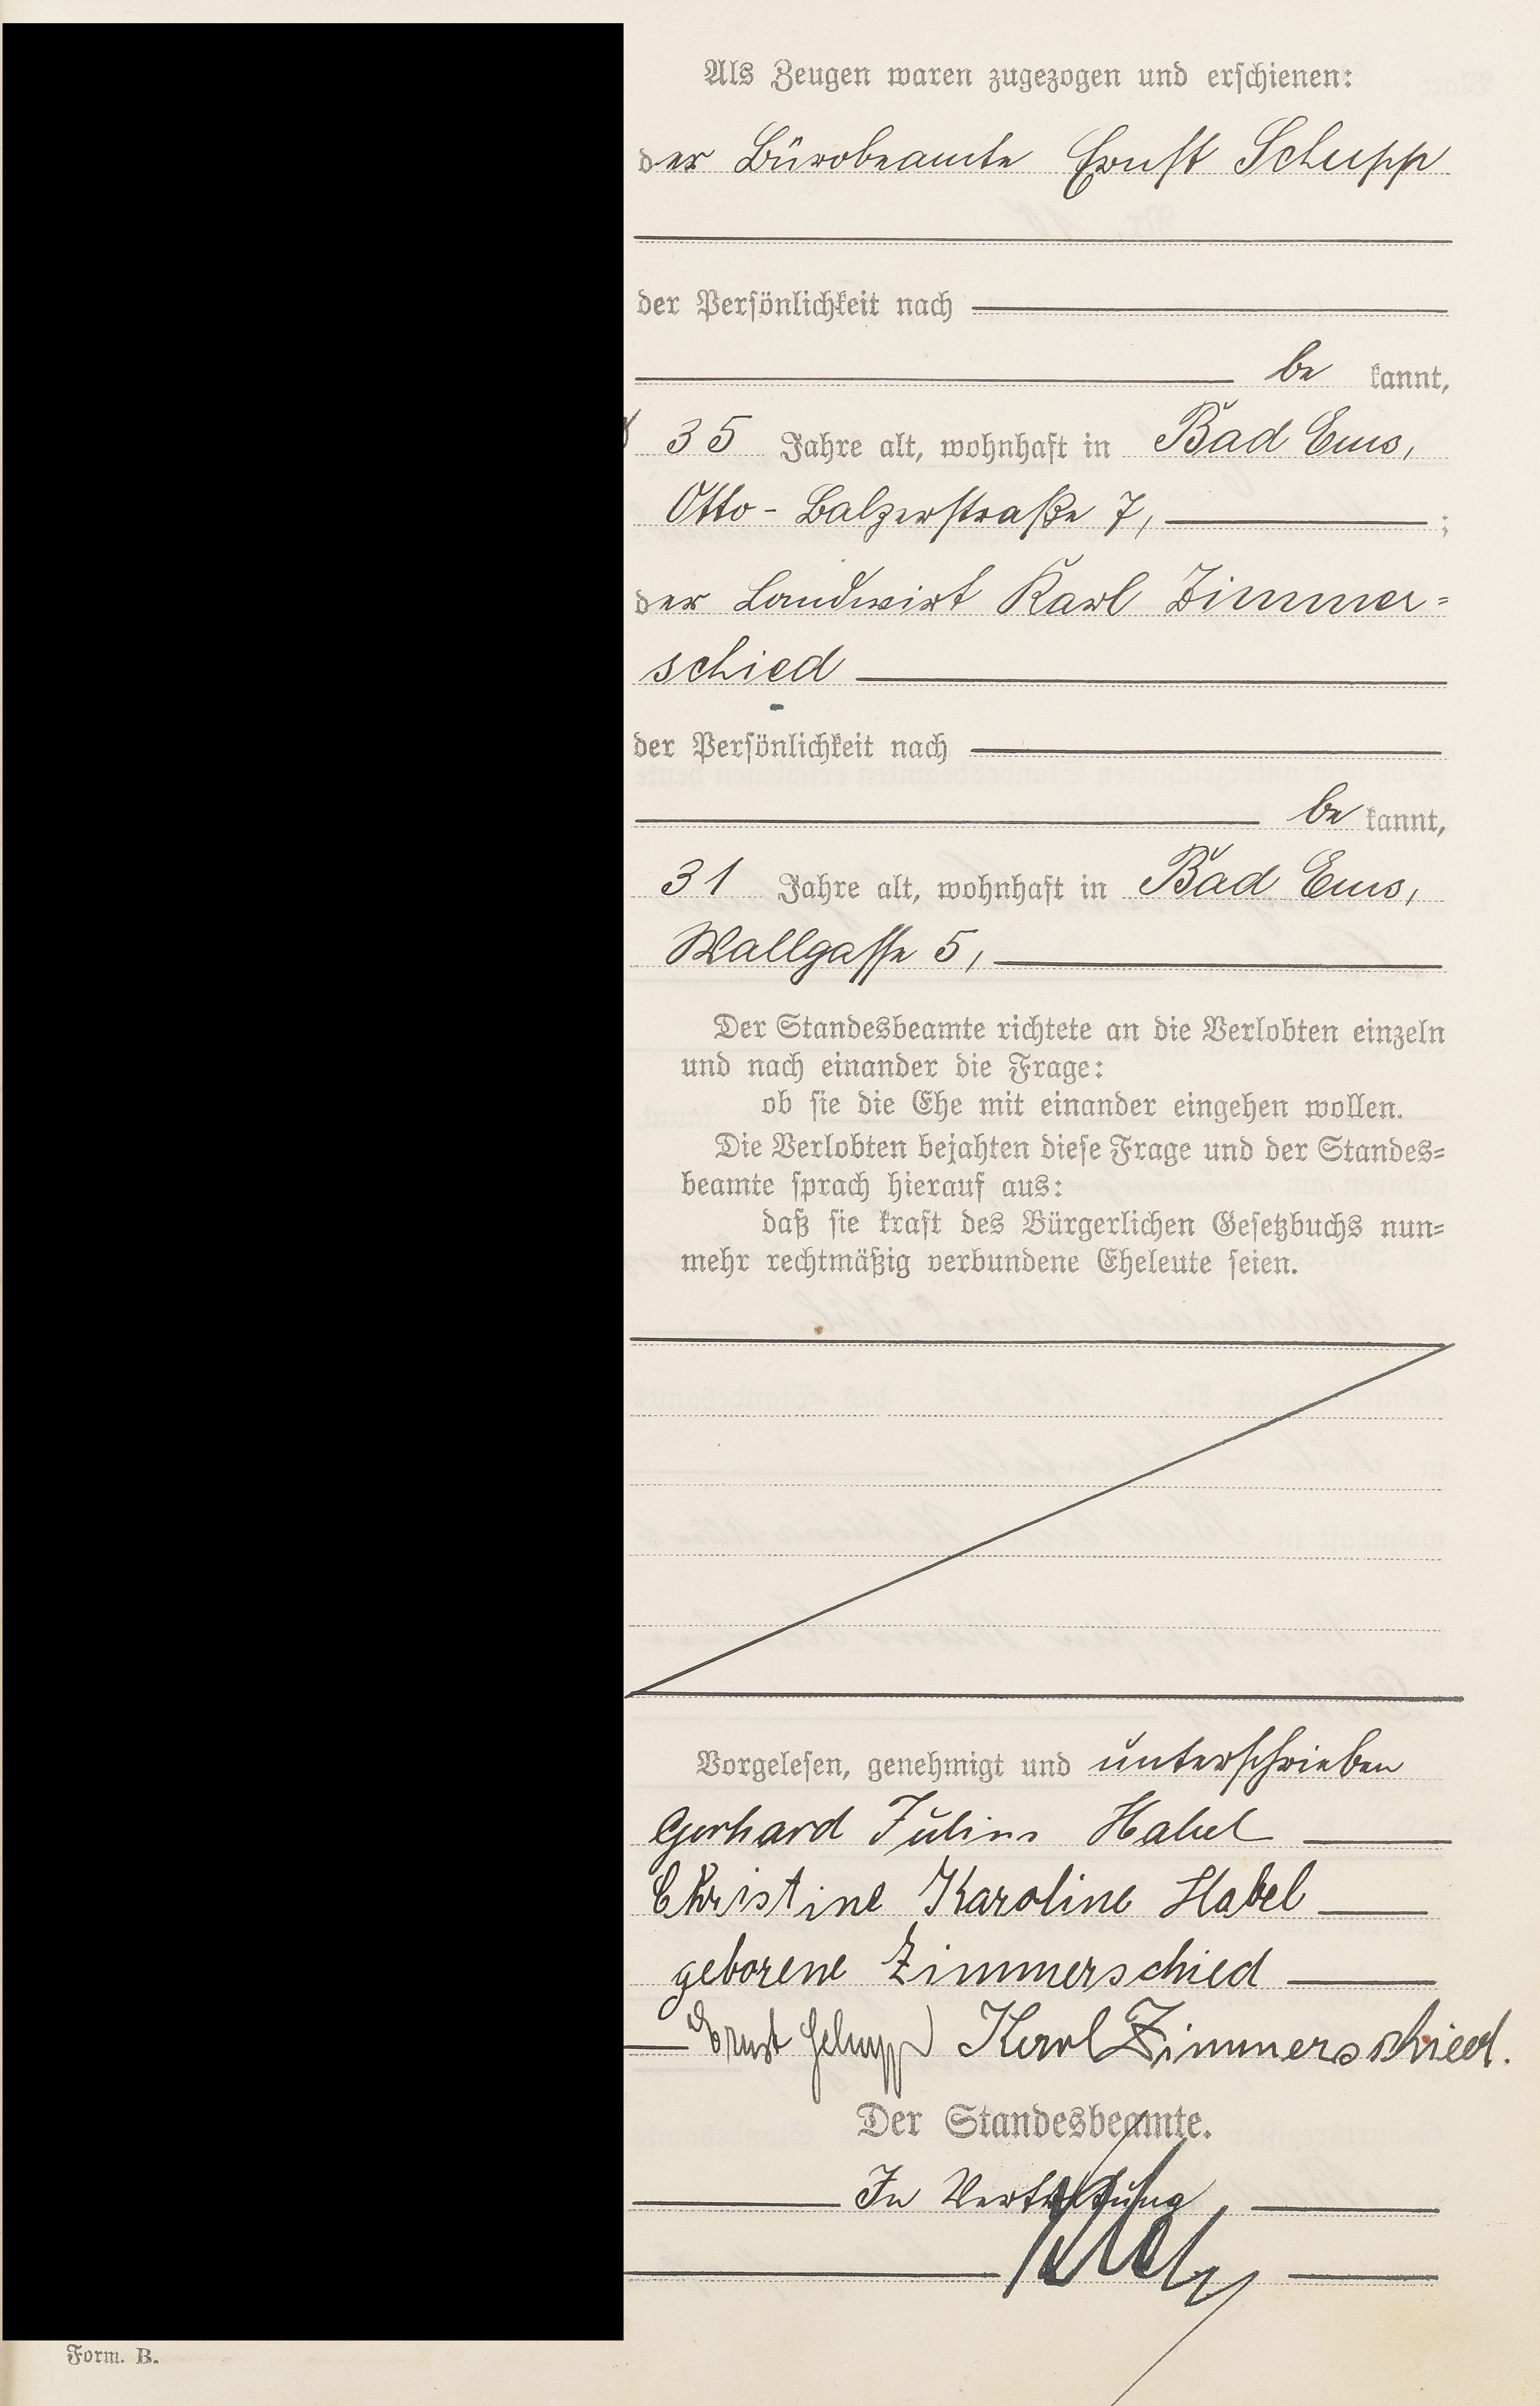 Als Zeugen waren zugezogen und erschienen:
der Bürobeamte Ernst Schupp
der Persönlichkeit nach
be kannt,
35 Jahre alt, wohnhaft in Bad Ems,
Otto-Balzerstraße 7, ;
der Landwirt Karl Zimmer=
schied
der Persönlichkeit nach
be kannt,
31 Jahre alt, wohnhaft in Bad Ems,
Wallgasse 5,
Der Standesbeamte richtete an die Verlobten einzeln
und nach einander die Frage:
ob sie die Ehe mit einander eingehen wollen.
Die Verlobten bejahten diese Frage und der Standes=
beamte sprach hierauf aus:
daß sie kraft des Bürgerlichen Gesetzbuchs nun=
mehr rechtmäßig verbundene Eheleute seien.
Vorgelesen, genehmigt und unterschrieben
Gerhard Julius Habel
Christine Karoline Habel
geborene Zimmerschied
Ernst Schupp Karl Zimmerschied.
Der Standesbeamte.
In Vertretung
Form. B.